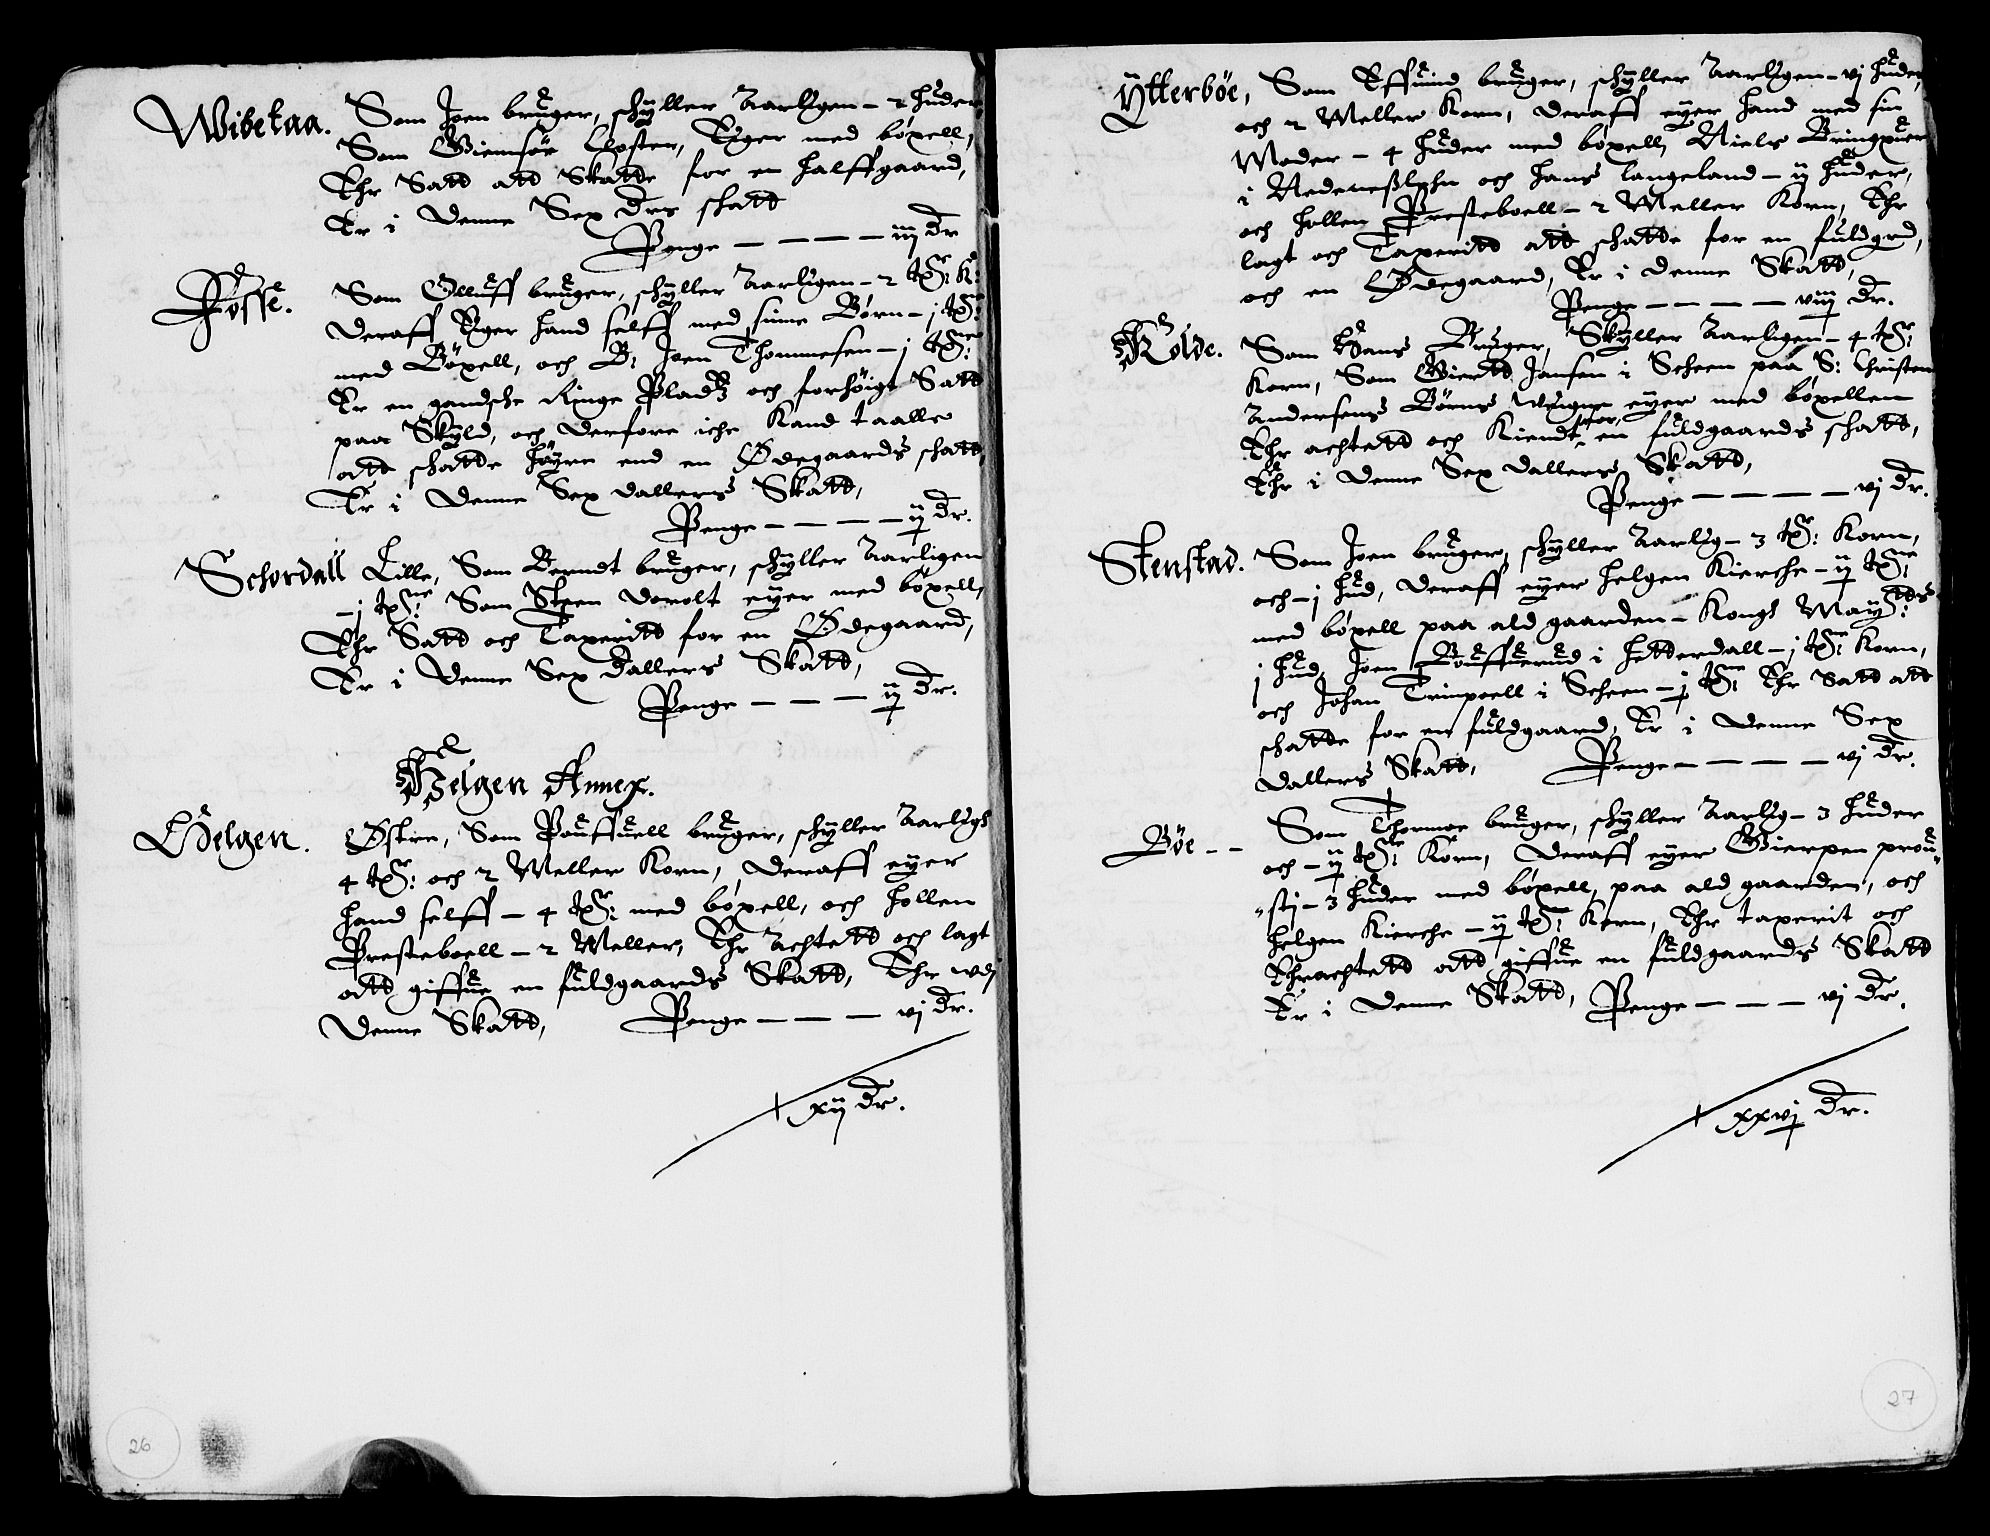 Wibetaa. Som Joen bruger, schÿller Aarligen - 2 huder
Som Giemsöe Closter, Eyger med böxell,
Ehr Satt att Skatte for en halffgaard,
Er i denne Sex drs schatt
Penge - - - - iij dr
Fosse. Som Olluff bruger, schÿller Aarligen - 2 tdr: K:
deraff Eyger hand selff med sinne Börn - j tdr:
med Böxell, och B: Joen Thommesen - j tdne
Er en gandsche Ringe Pladtz och forhöigt Satt
paa Skyld, och derfore iche Kand taalle
att schatte höyre end en Ødegaards schatt,
Er i denne Sex dallers Skatt,
Penge - - - - ij dr.
Schordall Lille, Som Berndt bruger, schÿller Aarligen
- j tdne Som Steen dorolt eÿer med böxell,
Ehr Satt och Taxeritt for en Ødegaard,
Er i denne Sex dallers Skatt,
Penge - - - ij dr.
Helgen Annex.
Helgen. Østre, Som Pouffuell bruger, schÿller Aarligs
4 tdr: och 2 Meller Korn, deraff eÿer
hand selff - 4 tdr: med böxell, och hollen
Presteboell - 2 Meller, Ehr Achtett och lagt
att giffue en fuldgaards Skatt, Ehr udj
denne Skatt, Penge - - - vj dr.
xij dr.
26
Ÿtterböe, Som Effuind bruger, schÿller Aarligen - vj huder,
och 2 Meller Korn, deraff eÿer hand med sin
Moder - 4 huder med böxell, Niels Bringxuer
i Nedenesslehn och hans langeland - ij huder,
och hollen Presteboell - 2 Meller Korn, Ehr
lagt och Taxeritt att schatte for en fuldgrd,
och en Ødegaard, Er i denne Skatt,
Penge - - - - viij dr.
Holde. Som Hans Bruger, Skÿller Aarligen - 4 tdr:
Korn, Som Giertt Jansen i Scheen paa S: Christen
Andersens Börns Wegne eyer med böxellen
Ehr achtett och Kiendt for en fuldgaards schatt,
Ehr i denne Sex dallers Skatt,
Penge - - - - vj dr.
Stenstad. Som Joen bruger, schÿller Aarlig - 3 tdr: Korn,
och - j hud, deraff eyer helgen Kierche - ij tdne
med böxell paa ald gaarden - Kongs Maÿtts:
j hud, Joen Bouffuerud i hetterdall - j tdr: Korn,
och Johan Trinpoell i Scheen - j tdne Ehr Satt att
schatte for en fuldgaard, Er i denne Sex
dallers Skatt, Penge - - - - vj dr.
Böe - - Som Thormoe bruger, schÿller Aarlig - 3 huder
och - ij tdr: Korn, deraff eyer Gierpen prou„
„stj - 3 huder med böxell, paa ald gaarden, och
helgen Kierche - ij tdne Korn, Ehr taxerit och
Ehrachtett att giffue en fuldgaards Skatt
Er i denne Skatt, Penge - - - vj dr.
xxvj dr.
27